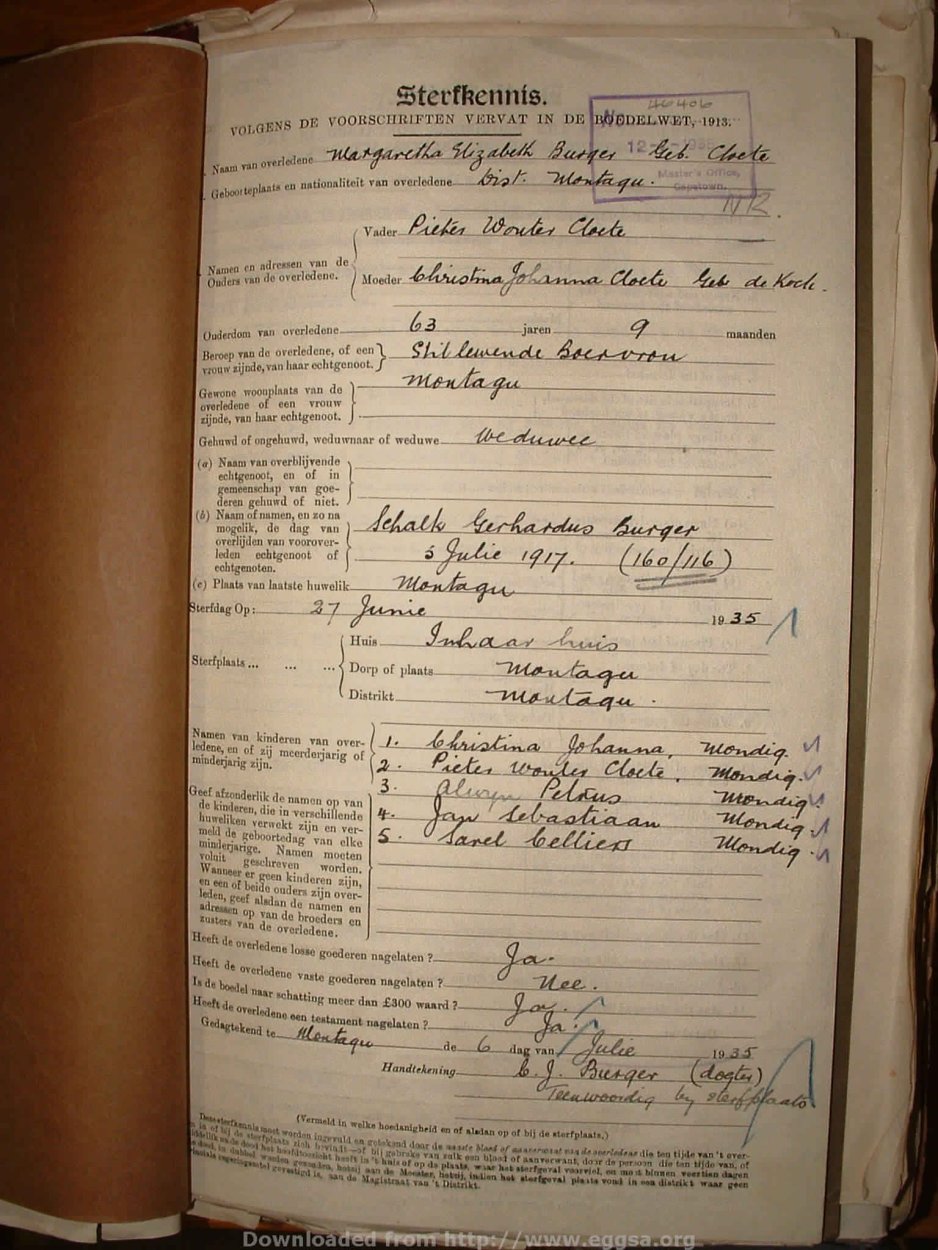 Sterfkennis.
VOLGENS DE VOORSCHRIFTEN VERVAT IN DE BOEDELWET, 1913.
No. 46406
12
Master's Office,
Capetown.
Naam van overledene Margaretha Elizabeth Burger Geb. Cloete
Geboorteplaats en nationaliteit van overledene Dist. Montagu.
NR.
Namen en adressen van de Ouders van de overledene.
Vader Pieter Wouter Cloete
Moeder Christina Johanna Cloete Geb de Kock.
Ouderdom van overledene 63 jaren 9 maanden
Beroep van de overledene, of een vrouw zijnde, van haar echtgenoot.
Stil lewende Boervrou
Gewone woonplaats van de overledene of een vrouw zijnde, van haar echtgenoot.
Montagu
Gehuwd of ongehuwd, weduwnaar of weduwe Weduwee
(a) Naam van overblijvende
echtgenoot, en of in
gemeenschap van goe-
deren gehuwd of niet.
(b) Naam of namen, en zo na
mogelik, de dag van
overlijden van voorover-
leden echtgenoot of
echtgenoten.
Schalk Gerhardus Burger
5 Julie 1917. (160/116)
(c) Plaats van laatste huwelik Montagu
Sterfdag Op: 27 Junie 1935
Sterfplaats ... ... ...
Huis In haar huis
Dorp of plaats Montagu
Distrikt Montagu.
Namen van kinderen van over-
ledene, en of zij meerderjarig of
minderjarig zijn.
Geef afzonderlik de namen op van
de kinderen, die in verschillende
huweliken verwekt zijn en ver-
meld de geboortedag van elke
minderjarige. Namen moeten
voluit geschreven worden.
Wanneer er geen kinderen zijn,
en een of beide ouders zijn over-
leden, geef alsdan de namen en
adressen op van de broeders en
zusters van de overledene.
1. Christina Johanna, Mondig.
2. Pieter Wouter Cloete, Mondig.
3. Alwyn Petrus Mondig.
4. Jan Sebastiaan Mondig.
5. Sarel Celliers Mondig.
Heeft de overledene losse goederen nagelaten ? Ja.
Heeft de overledene vaste goederen nagelaten ? Nee.
Is de boedel naar schatting meer dan £300 waard ? Ja.
Heeft de overledene een testament nagelaten ? Ja.
Gedagtekend te Montagu de 6 dag van Julie 1935
Handtekening C. J. Burger (dogter)
Teenwoordig by sterfplaats
(Vermeld in welke hoedanigheid en of alsdan op of bij de sterfplaats.)
Deze sterfkennis moet worden ingevuld en getekend door de naaste bloed of aanverwant van de overledene die ten tijde van 't over-
in of bij de sterfplaats zich bevindt—of bij gebreke van zulk een bloed of aanverwant, door de persoon die ten tijde van, of
de dood het hoofdtoezicht heeft in 't huis of op de plaats, waar het sterfgeval voorviel, en moet binnen veertien dagen
in dubbel worden gezonden, hetzij aan de Meester, hetzij, indien het sterfgeval plaats vond in een distrikt waar geen
gevestigd is, aan de Magistraat van 't Distrikt.
Downloaded from http://www.eggsa.org